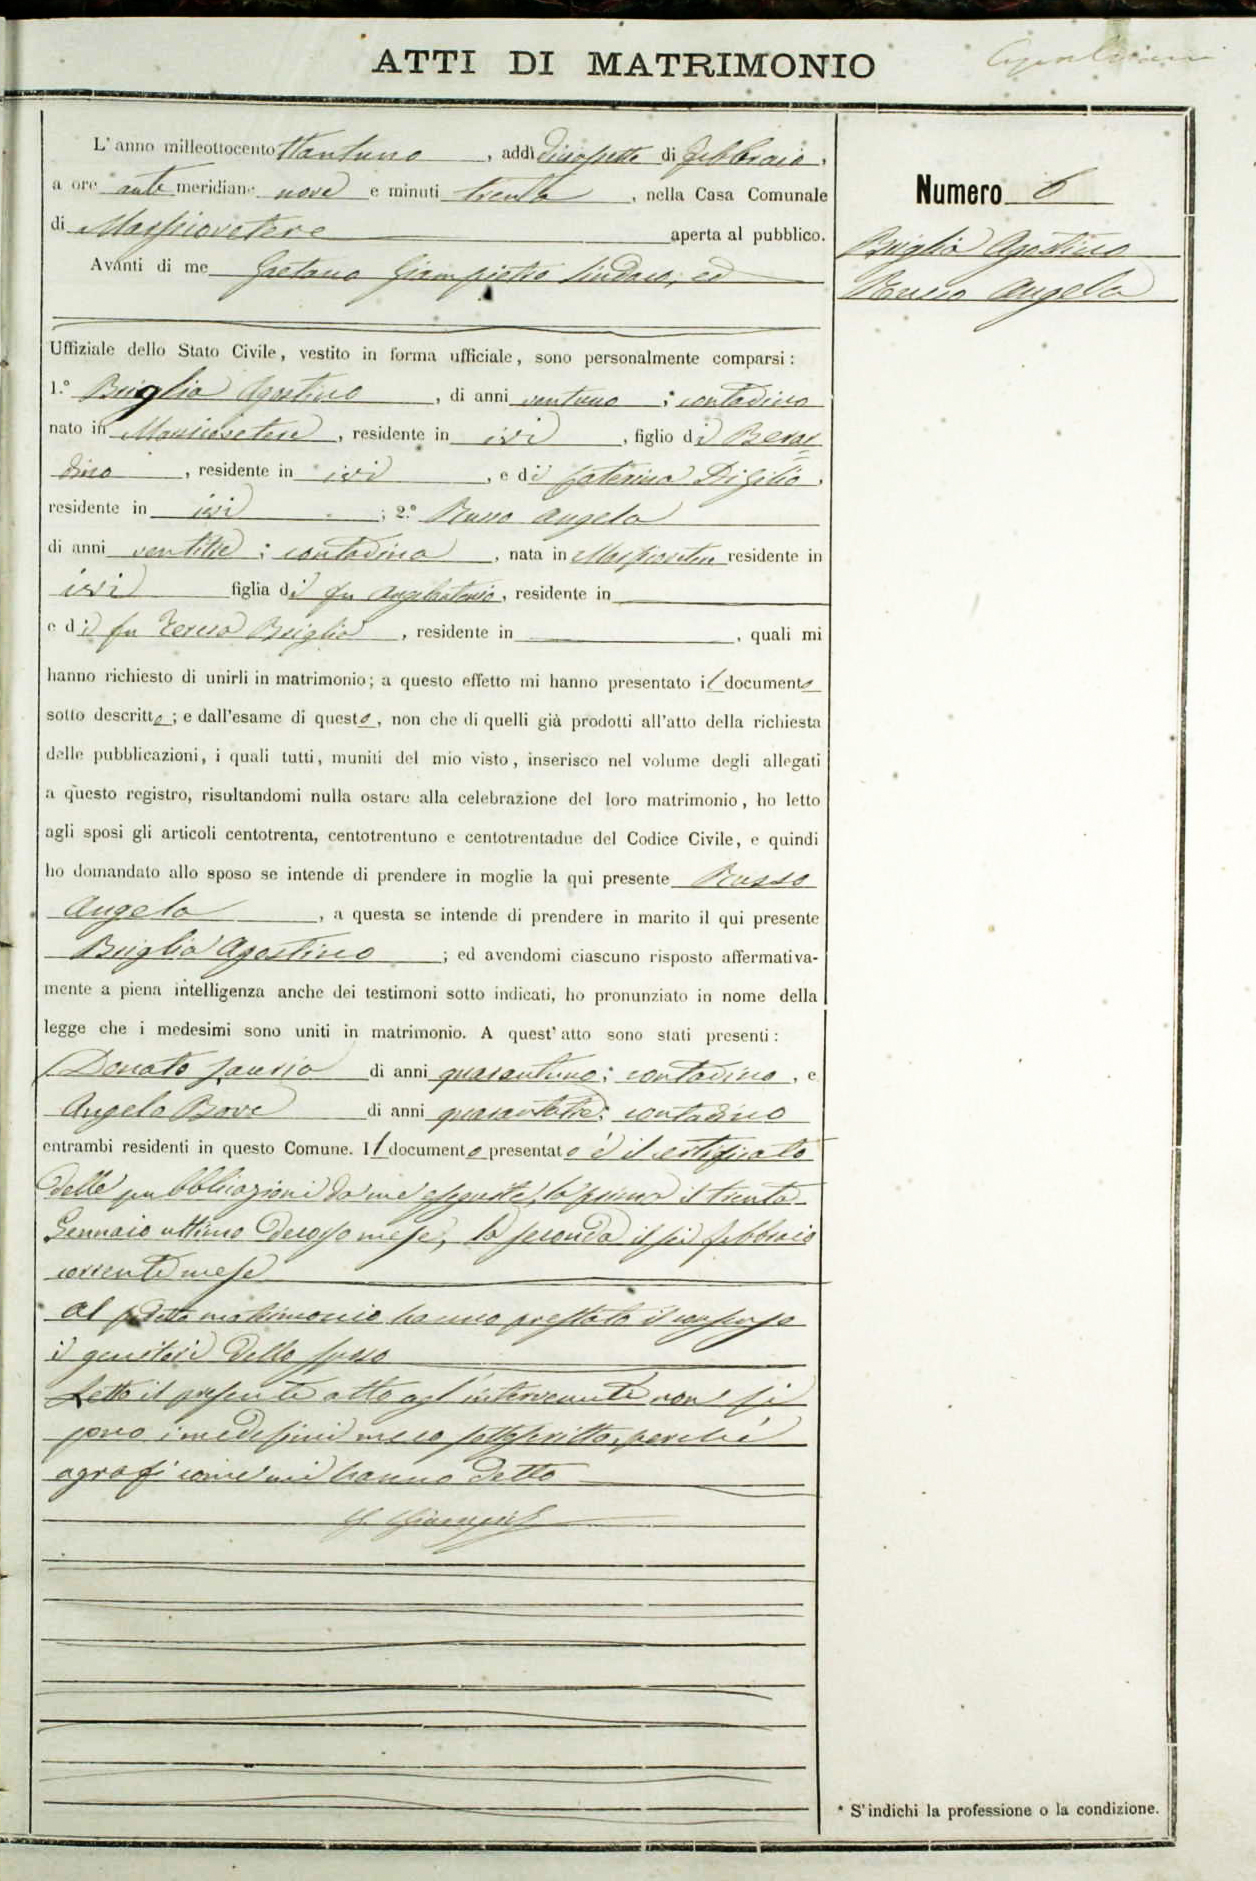 ATTI DI MATRIMONIO
L'anno milleottocento ttantuno, addì diciassette di Febbraio,
a ore ante meridiane nove e minuti trenta, nella Casa Comunale
di Marsicovetere aperta al pubblico.
Avanti di me Gaetano Giampietro Sindaco, ed
Uffiziale dello Stato Civile, vestito in forma ufficiale, sono personalmente comparsi:
1.° Briglia Agostino, di anni ventuno; contadino
nato in Marsicovetere, residente in ivi, figlio di Berar=
dino, residente in ivi, e di Caterina Digilio,
residente in ivi; 2.° Russo Angela
di anni ventitre; contadina, nata in Marsicovetere residente in
ivi figlia di fu Angelantonio, residente in
e di fu Teresa Briglia, residente in, quali mi
hanno richiesto di unirli in matrimonio; a questo effetto mi hanno presentato il documento
sotto descritto; e dall'esame di questo, non che di quelli già prodotti all'atto della richiesta
delle pubblicazioni, i quali tutti, muniti del mio visto, inserisco nel volume degli allegati
a questo registro, risultandomi nulla ostare alla celebrazione del loro matrimonio, ho letto
agli sposi gli articoli centotrenta, centotrentuno e centotrentadue del Codice Civile, e quindi
ho domandato allo sposo se intende di prendere in moglie la qui presente Russo
Angela, a questa se intende di prendere in marito il qui presente
Briglia Agostino; ed avendomi ciascuno risposto affermativa-
mente a piena intelligenza anche dei testimoni sotto indicati, ho pronunziato in nome della
legge che i medesimi sono uniti in matrimonio. A quest'atto sono stati presenti:
Donato Lauria di anni quarantuno; contadino, e
Angelo Bove di anni quarantatre; contadino
entrambi residenti in questo Comune. Il documento presentato è il certificato
delle pubblicazioni da me eseguite, la prima il trenta
Gennaio ultimo decorso mese, la seconda il sei febbraio
corrente mese
Al detto matrimonio hanno prestato il consenso
i genitori dello sposo
Letto il presente atto agl'intervenuti non si
sono i medesimi meco sottoscritto, perchè
agrafi come mi hanno detto
Numero 6
Briglia Agostino
Russo Angela
* S'indichi la professione o la condizione.